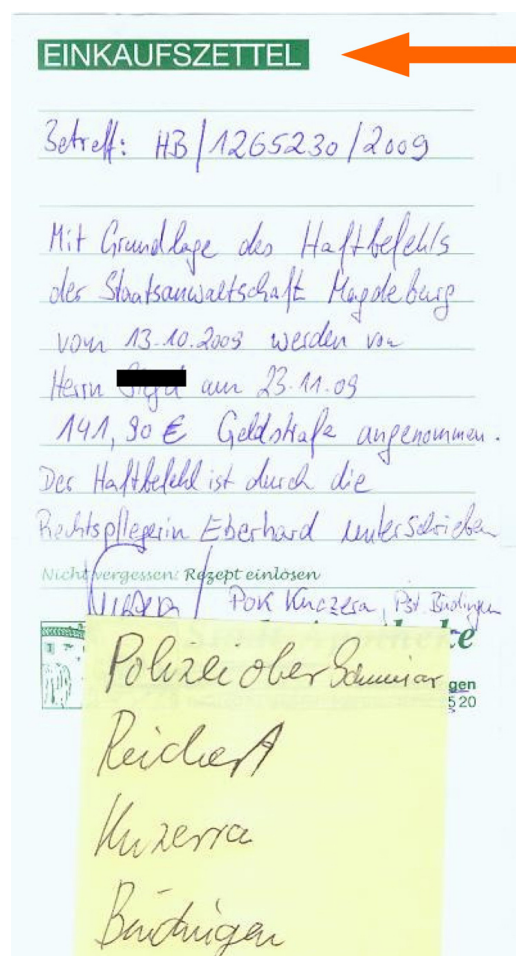 EINKAUFSZETTEL
Betreff: HB/1265230/2009
Mit Grundlage des Haftbefehls
der Staatsanwaltschaft Magdeburg
vom 13.10.2009 werden von
Herrn am 23.11.09
141,90 € Geldstrafe angenommen.
Der Haftbefehl ist durch die
Rechtspflegerin Eberhard unterschrieben
Nicht vergessen: Rezept einlösen
POK Kuczera, Pst. Büdingen
e
gen
5 20
Polizeiober
Reichert
Kuzerra
Büdingen